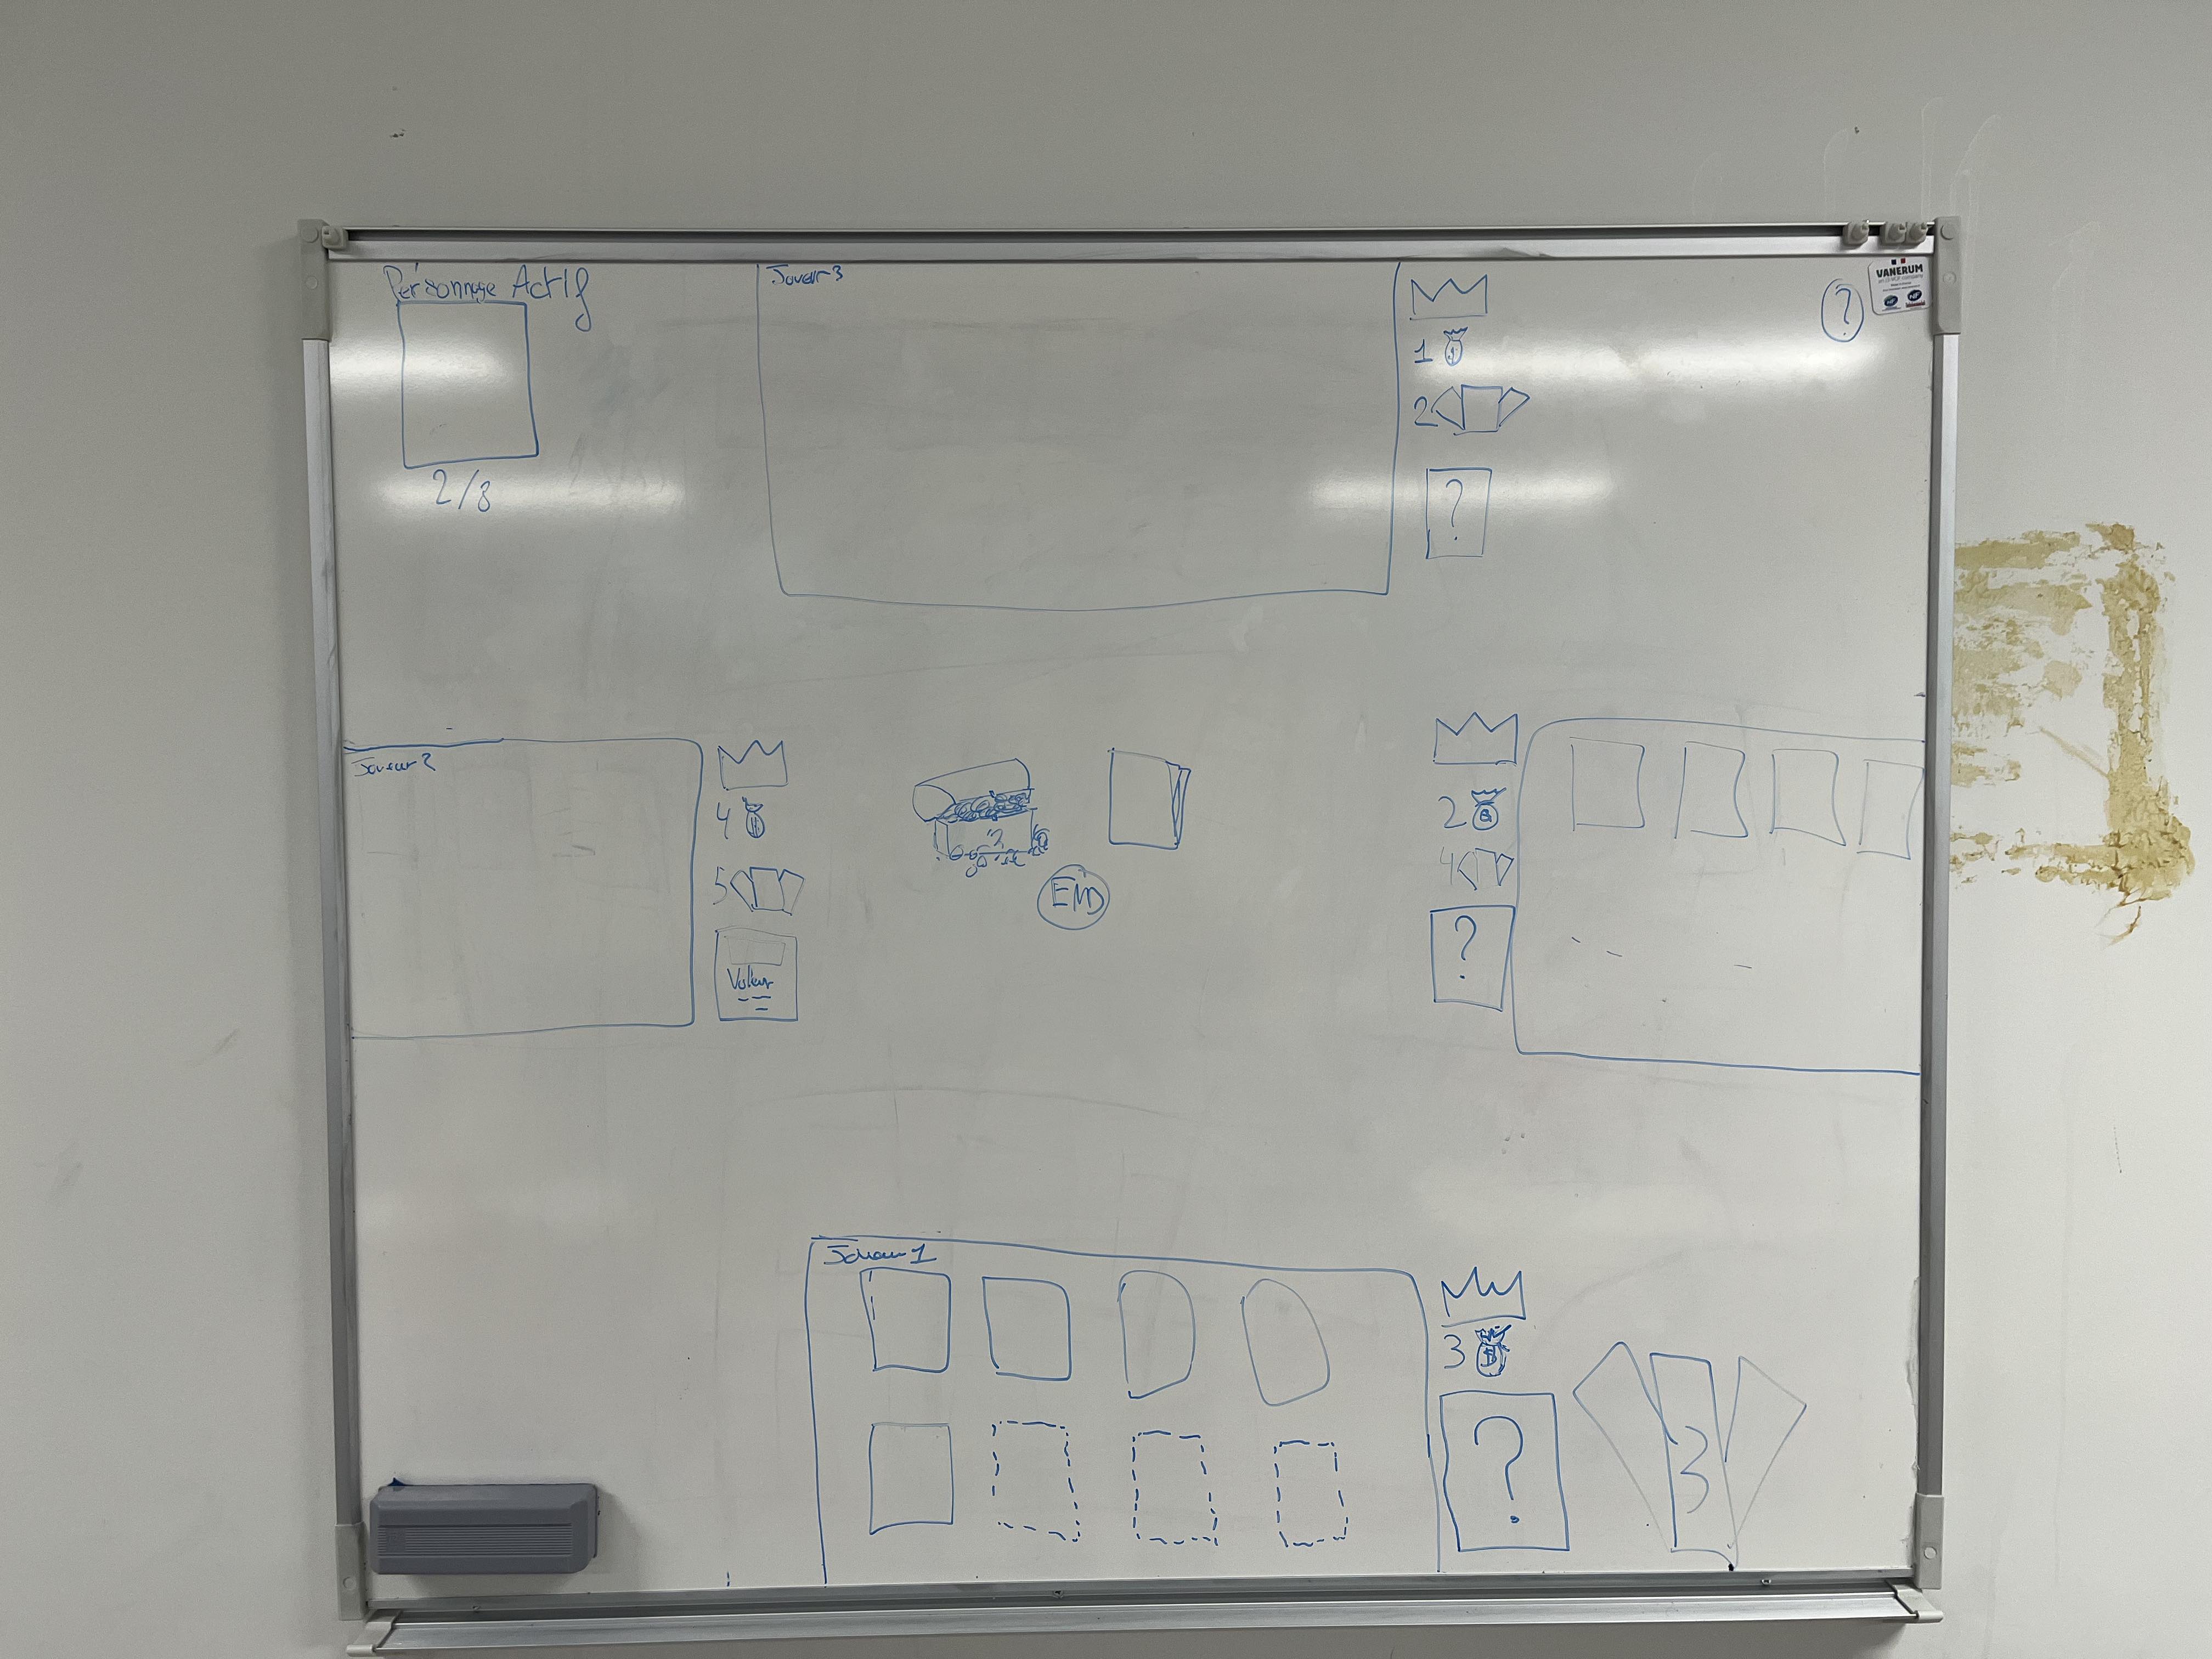 Personnage Actif
2/8
Joueur 3
1
2
?
?
VANERUM
Joueur 2
4
5
Voleur
END
2
4
?
Joueur 1
3
?
3